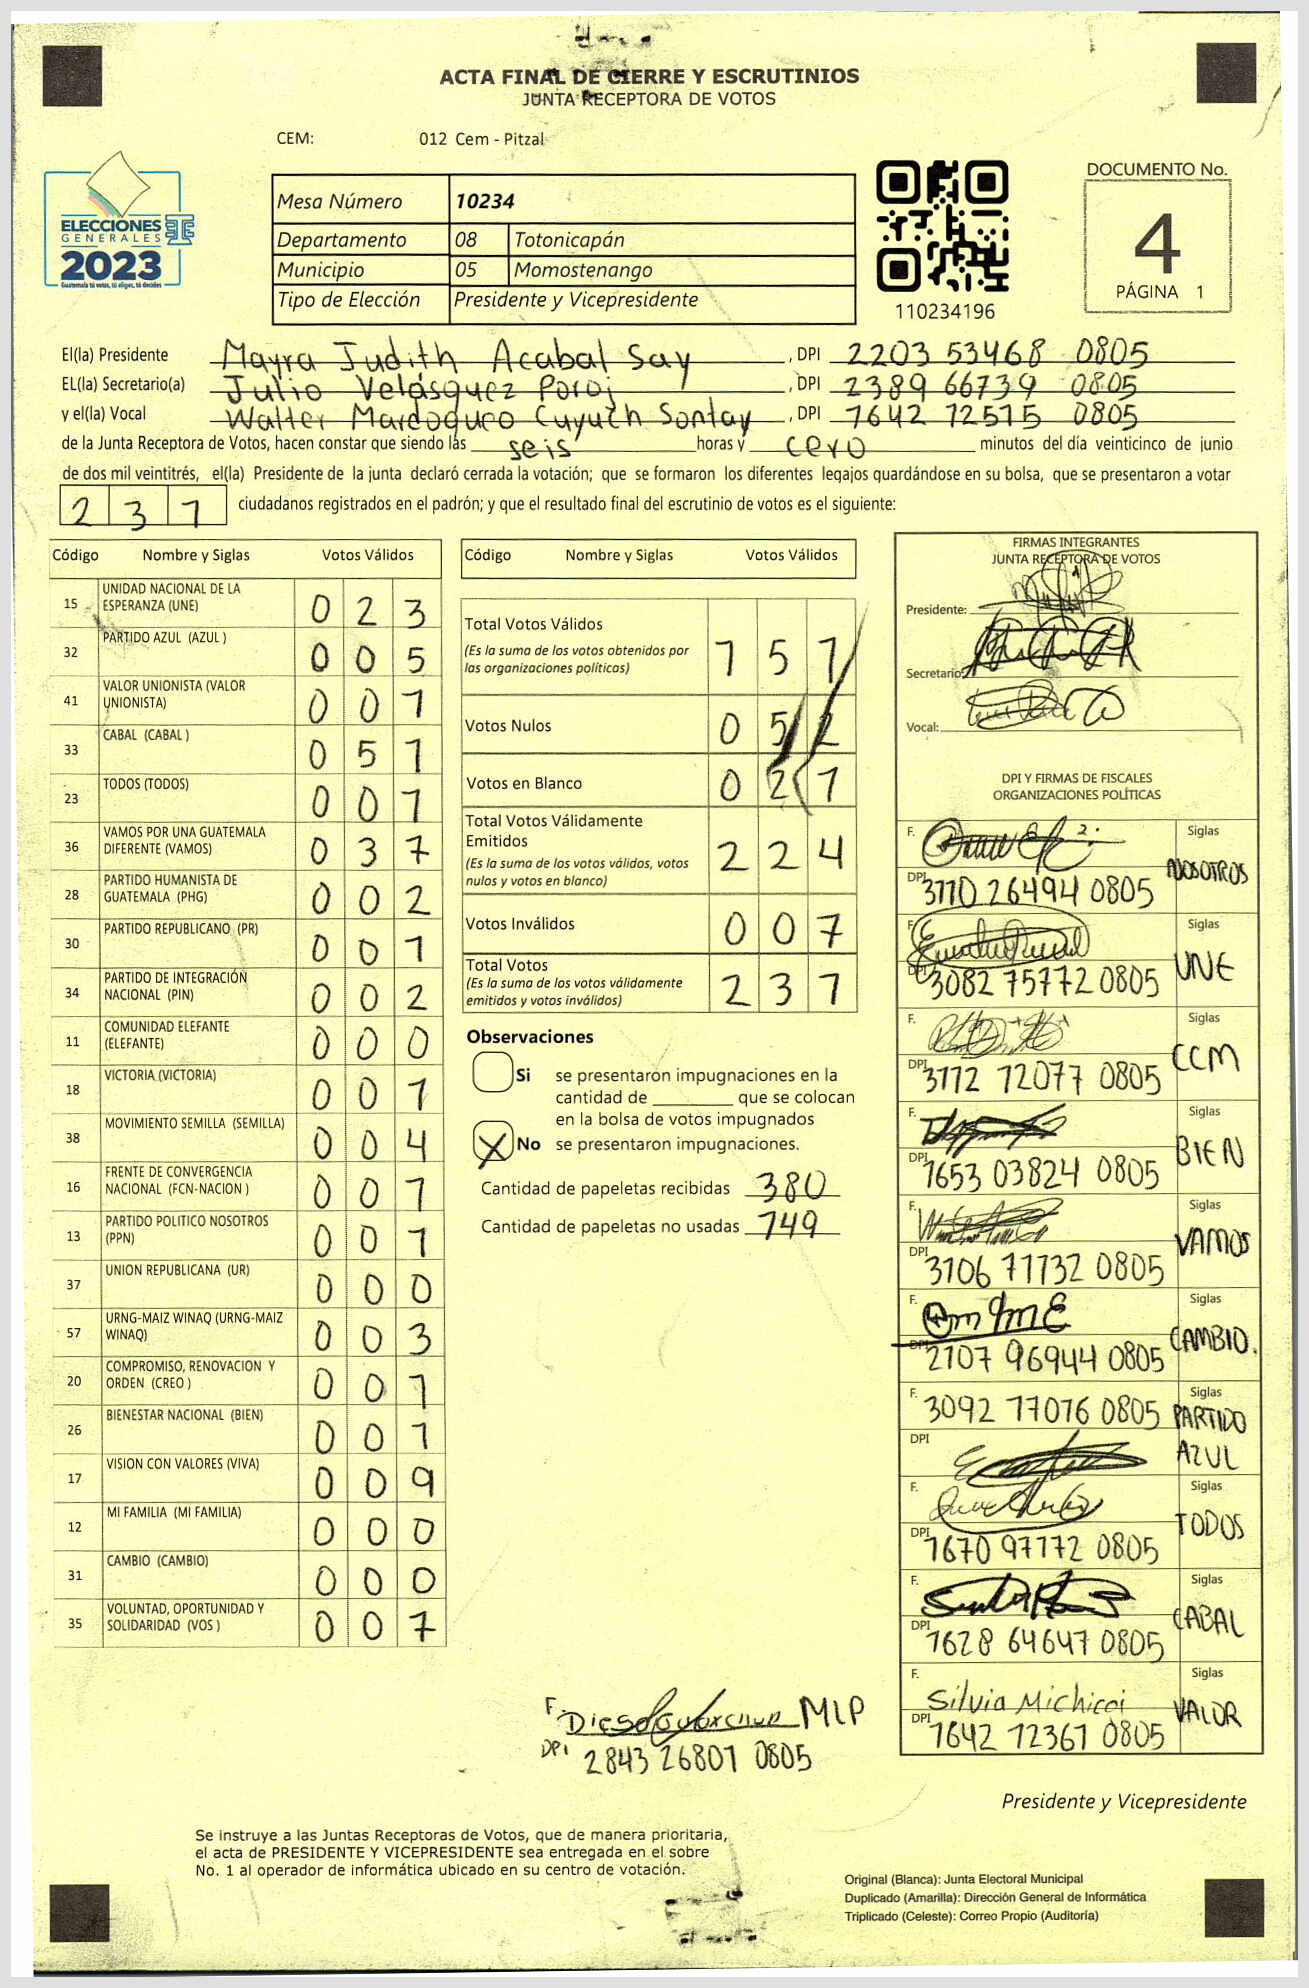 ACTA FINAL DE CIERRE Y ESCRUTINIOS
JUNTA RECEPTORA DE VOTOS
CEM: 012 Cem - Pitzal
ELECCIONES
GENERALES
2023
Guatemala tú votas, tú eliges, tú decides
Mesa Número 10234
Departamento 08 Totonicapán
Municipio 05 Momostenango
Tipo de Elección Presidente y Vicepresidente
110234196
DOCUMENTO No.
4
PÁGINA 1
El(la) Presidente Mayra Judith Acabal Say , DPI 2203 53468 0805
EL(la) Secretario(a) Julio Velásquez Poroj , DPI 2389 66739 0805
y el(la) Vocal Walter Mardoqueo Cuyuch Sontay , DPI 1642 12515 0805
de la Junta Receptora de Votos, hacen constar que siendo las seis horas y cero minutos del día veinticinco de junio
de dos mil veintitrés, el(la) Presidente de la junta declaró cerrada la votación; que se formaron los diferentes legajos quardándose en su bolsa, que se presentaron a votar
2 3 1 ciudadanos registrados en el padrón; y que el resultado final del escrutinio de votos es el siguiente:
Código Nombre y Siglas Votos Válidos
15 UNIDAD NACIONAL DE LA ESPERANZA (UNE) 0 2 3
32 PARTIDO AZUL (AZUL ) 0 0 5
41 VALOR UNIONISTA (VALOR UNIONISTA) 0 0 1
33 CABAL (CABAL ) 0 5 1
23 TODOS (TODOS) 0 0 1
36 VAMOS POR UNA GUATEMALA DIFERENTE (VAMOS) 0 3 7
28 PARTIDO HUMANISTA DE GUATEMALA (PHG) 0 0 2
30 PARTIDO REPUBLICANO (PR) 0 0 1
34 PARTIDO DE INTEGRACIÓN NACIONAL (PIN) 0 0 2
11 COMUNIDAD ELEFANTE (ELEFANTE) 0 0 0
18 VICTORIA (VICTORIA) 0 0 1
38 MOVIMIENTO SEMILLA (SEMILLA) 0 0 4
16 FRENTE DE CONVERGENCIA NACIONAL (FCN-NACION ) 0 0 1
13 PARTIDO POLITICO NOSOTROS (PPN) 0 0 1
37 UNION REPUBLICANA (UR) 0 0 0
57 URNG-MAIZ WINAQ (URNG-MAIZ WINAQ) 0 0 3
20 COMPROMISO, RENOVACION Y ORDEN (CREO ) 0 0 1
26 BIENESTAR NACIONAL (BIEN) 0 0 1
17 VISION CON VALORES (VIVA) 0 0 9
12 MI FAMILIA (MI FAMILIA) 0 0 0
31 CAMBIO (CAMBIO) 0 0 0
35 VOLUNTAD, OPORTUNIDAD Y SOLIDARIDAD (VOS ) 0 0 7
Código Nombre y Siglas Votos Válidos
Total Votos Válidos
(Es la suma de los votos obtenidos por las organizaciones políticas) 1 5 1
Votos Nulos 0 5 2
Votos en Blanco 0 2 1
Total Votos Válidamente Emitidos
(Es la suma de los votos válidos, votos nulos y votos en blanco) 2 2 4
Votos Inválidos 0 0 7
Total Votos
(Es la suma de los votos válidamente emitidos y votos inválidos) 2 3 1
Observaciones
Si se presentaron impugnaciones en la
cantidad de ________ que se colocan
en la bolsa de votos impugnados
X No se presentaron impugnaciones.
Cantidad de papeletas recibidas 380
Cantidad de papeletas no usadas 149
FIRMAS INTEGRANTES
JUNTA RECEPTORA DE VOTOS
Presidente:
Secretario:
Vocal:
DPI Y FIRMAS DE FISCALES
ORGANIZACIONES POLÍTICAS
F. Siglas NOSOTROS
DPI 3110 26494 0805
F. Siglas UNE
DPI 3082 15172 0805
F. Siglas CCM
DPI 3112 12077 0805
F. Siglas BIEN
DPI 1653 03824 0805
F. Siglas VAMOS
DPI 3106 11132 0805
F. Siglas CAMBIO.
DPI 2107 96944 0805
F. 3092 11016 0805 Siglas PARTIDO AZUL
DPI
F. Siglas TODOS
DPI 1670 97172 0805
F. Siglas CABAL
DPI 1628 64647 0805
F. Silvia Michicoj Siglas VALOR
DPI 1642 12361 0805
F. Diego MLP
DPI 2843 26801 0805
Presidente y Vicepresidente
Se instruye a las Juntas Receptoras de Votos, que de manera prioritaria,
el acta de PRESIDENTE Y VICEPRESIDENTE sea entregada en el sobre
No. 1 al operador de informática ubicado en su centro de votación.
Original (Blanca): Junta Electoral Municipal
Duplicado (Amarilla): Dirección General de Informática
Triplicado (Celeste): Correo Propio (Auditoría)